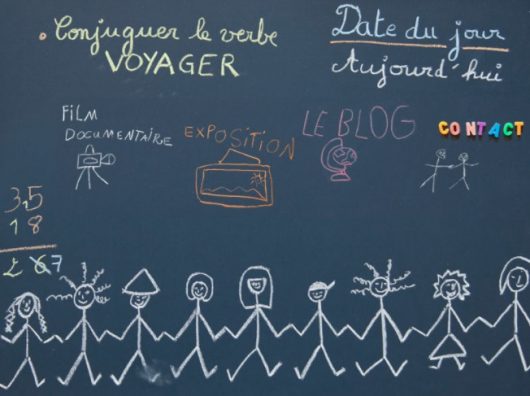 . Conjuguer le verbe
VOYAGER
Date du jour
Aujourd'hui
FILM
DOCUMENTAIRE
EXPOSITION
LE BLOG
CONTACT
3,5
18